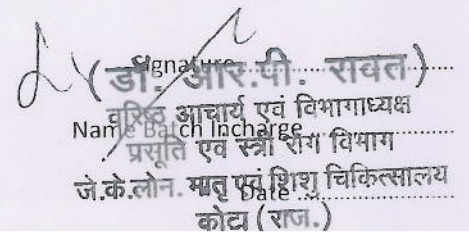 Signature..................
(डॉ. आर.पी. रावत)
वरिष्ठ आचार्य एवं विभागाध्यक्ष
Name Batch Incharge..................
प्रसूति एवं स्त्री रोग विभाग
जे.के.लोन. मातृ एवं शिशु चिकित्सालय
Date..................
कोटा (राज.)